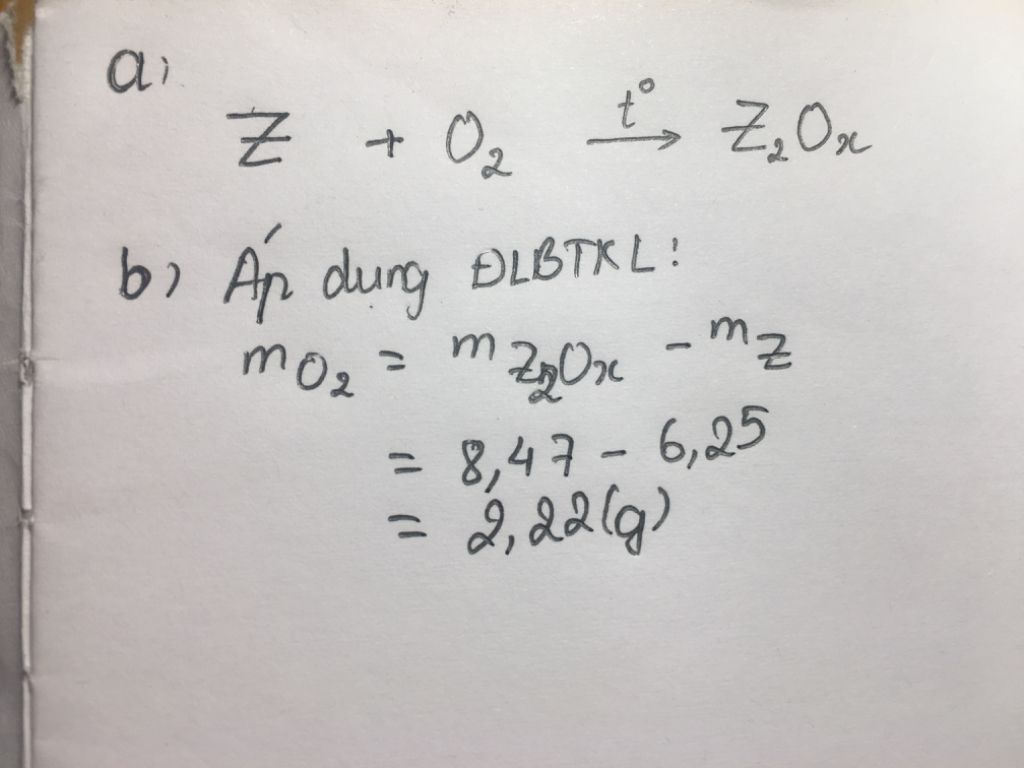 a)
Z + O₂ t° → Z₂Oₓ
b) Áp dung ĐLBTKL:
m O₂ = m Z₂Oₓ - m Z
= 8,47 - 6,25
= 2,22(g)